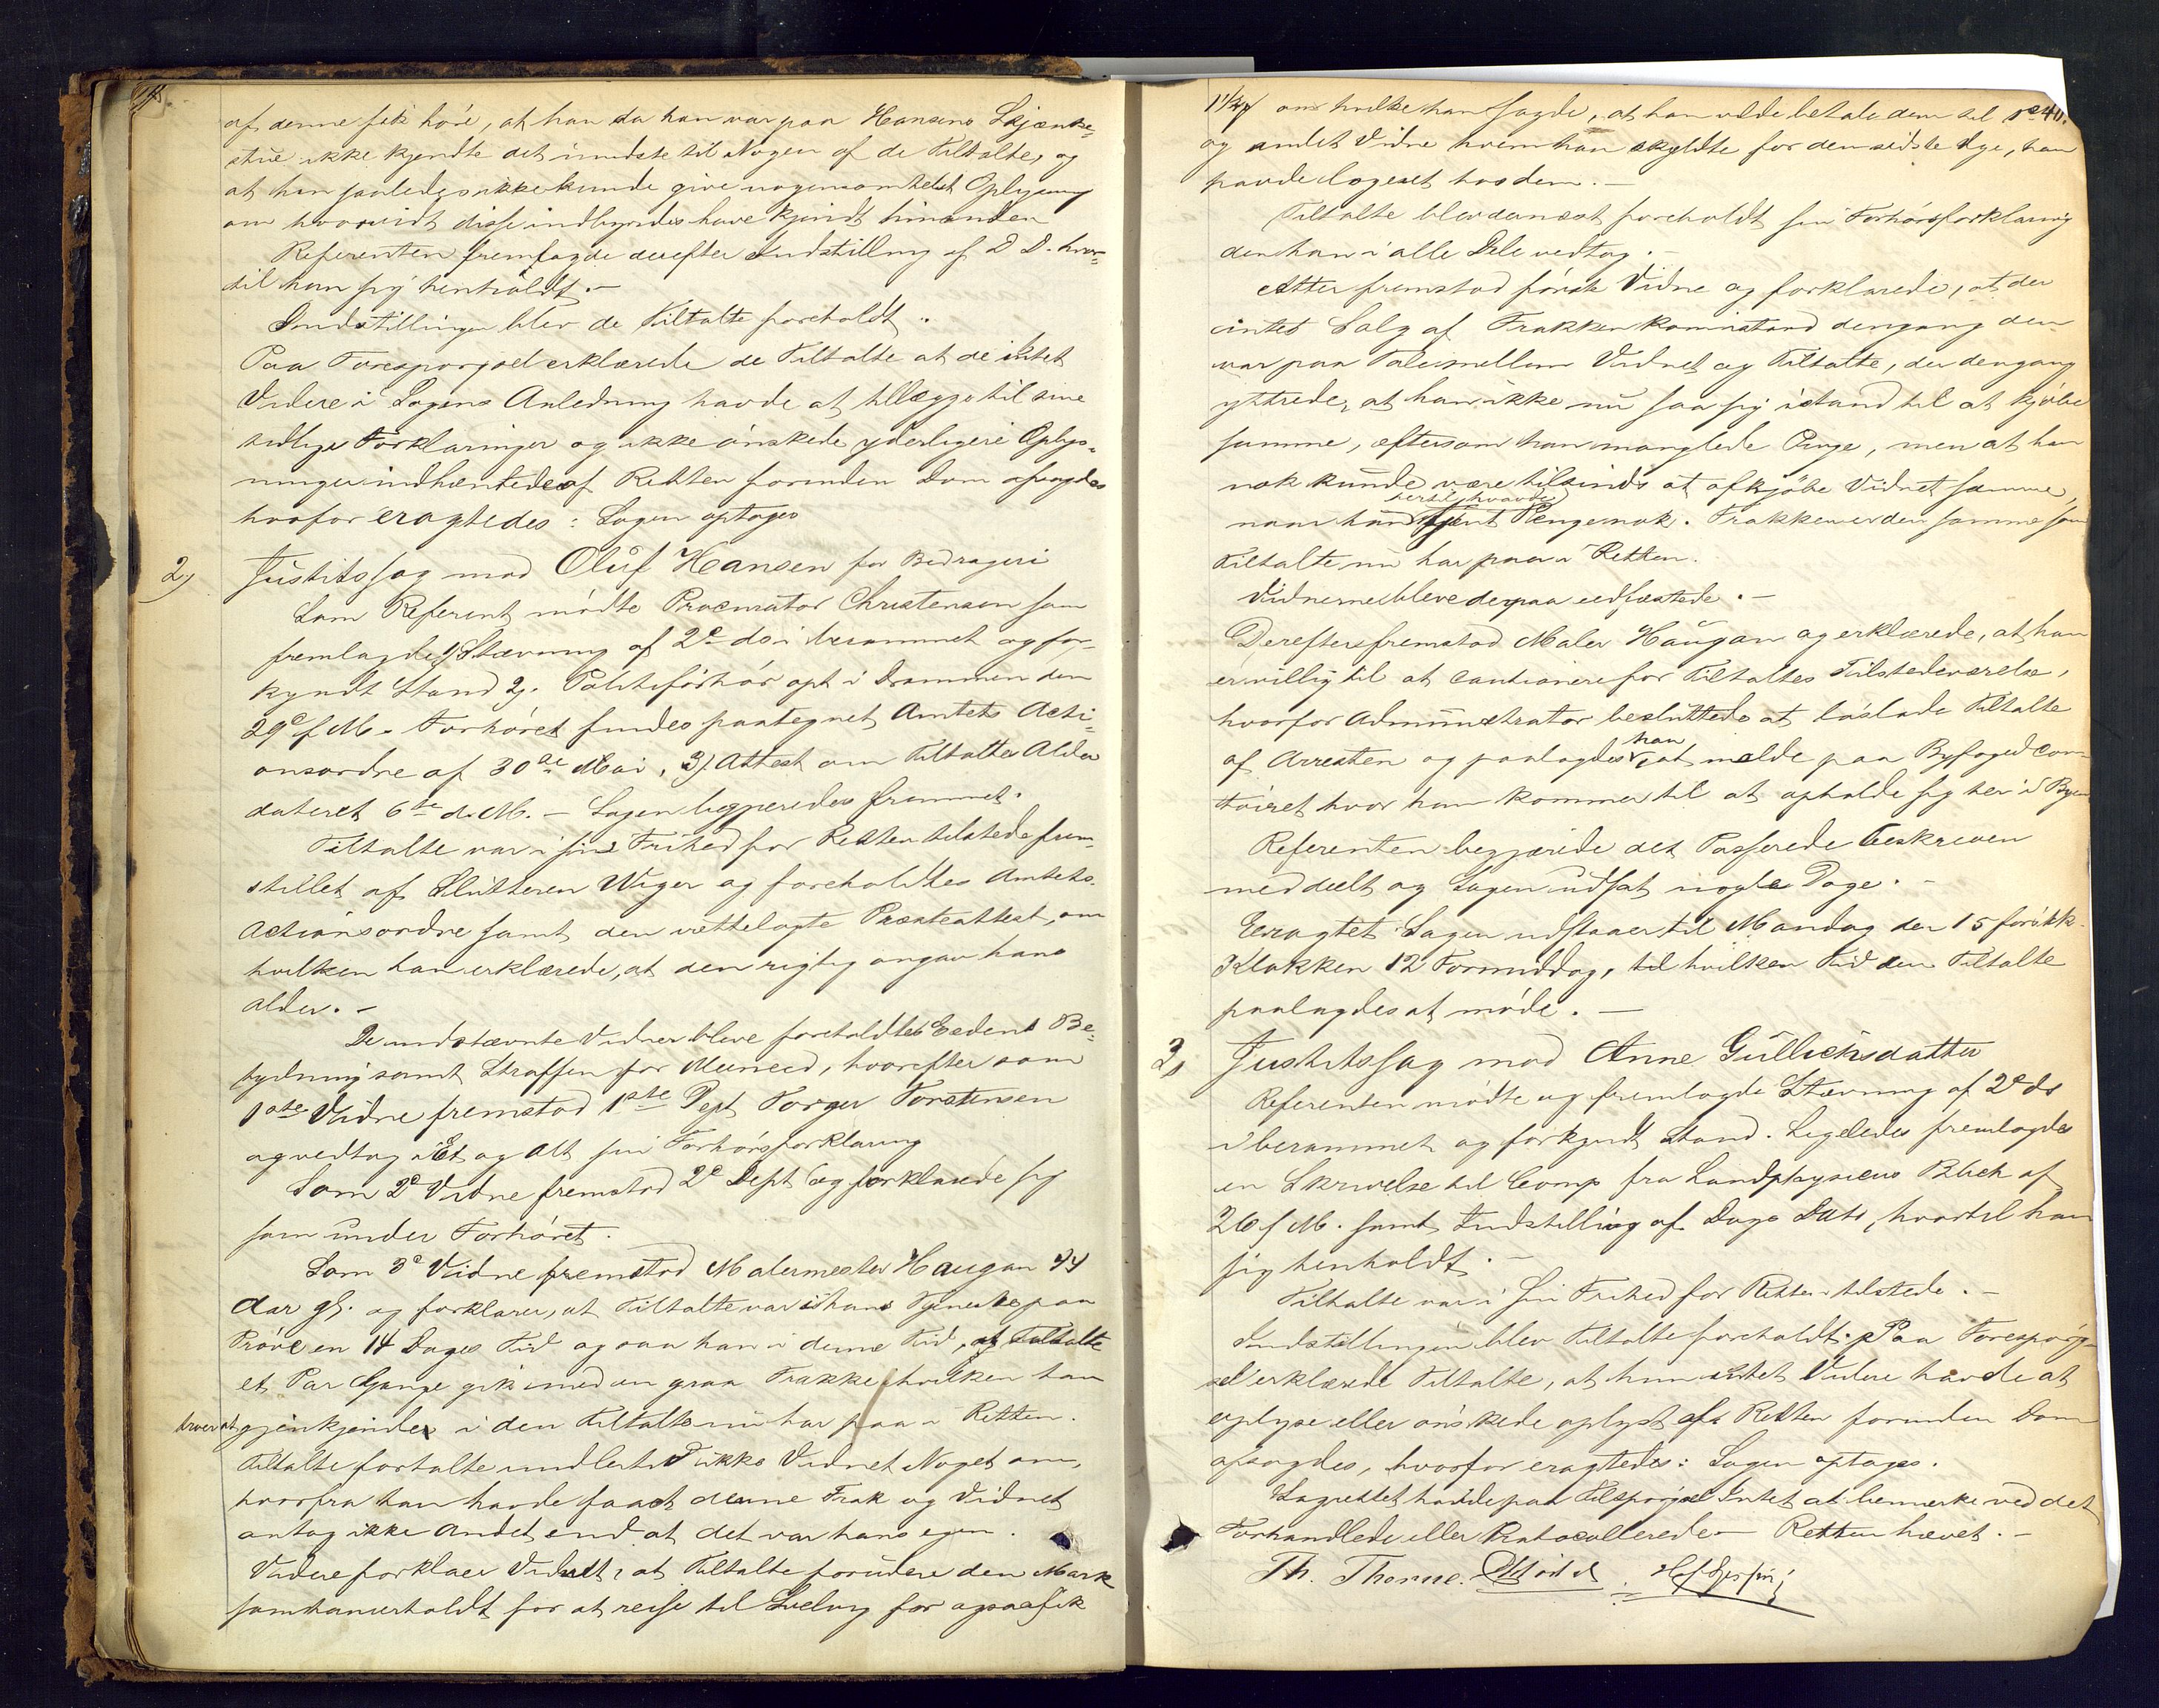 af denne fik høre, at han da han var paa Hansens Skjænke-
stue ikke kjendte det mindste til Nogen af de Tiltalte, og
at han saaledes ikke kunde give nogensomhelst Oplysning
om hvorvidt disse indbyrdes have kjendt hinanden
Referenten fremlagde derefter Indstilling af D D. hvor-
til han sig henholdt. -
Indstillingen blev de Tiltalte foreholdt.
Paa Forespørgsel erklærede de Tiltalte at de intet
Videre i Sagens Anledning havde at tillægge til sine
tidlige Forklaringer og ikke ønskede yderligere Oplys-
ninger indhentede af Retten forinden Dom afsagdes
hvorfor eragtedes: Sagen optages
2) Justitssag mod Oluf Hansen for Bedrageri
Som Referent mødte Procurator Christensen som
fremlagde 1) Stævning af 2de ds i berammet og for-
kyndt Stand 2). Politiforhør opt i Drammen den
29de f. M. Forhøret fundes paategnet Amtets Acti-
onsordre af 30de Mai, 3) Attest om Tiltaltes Alder
dateret 6te d. M. - Sagen begjæredes fremmet.
Tiltalte var i sin Frihed for Retten tilstede frem-
stillet af Slutteren Wiger og foreholdtes Amtets
Actionsordre samt den rettelagte Præsteattest, om
hvilken han erklærede, at den rigtig angav hans
alder. -
De indstævnte Vidner bleve foreholdte Eedens Be-
tydning samt Straffen for Meneed, hvorefter som
1ste Vidne fremstod 1ste Dept Torger Torstensen
og vedtog i Et og Alt sin Forhørsforklaring
Som 2de Vidne fremstod 2de Dept og forklarede sig
som under Forhøret.
Som 3de Vidne fremstod Malermester Haugan 44
Aar gl. og forklarer, at Tiltalte var i hans Tjeneste paa
Prøve en 14 Dages Tid og saa han i denne Tid, at Tiltalte
et Par Gange gik med en graa Frakke hvilken han
gjenkjender i den Tiltalte nu har paa i Retten.
Tiltalte fortalte imidlertid ikke Vidnet Noget om,
hvorfra han havde faaet denne Frak og Vidnet
antog ikke Andet end at det var hans egen.
Videre forklarer Vidnet, at Tiltalte foruden den Mark
som han erholdt for at reise til Svelvig for ogsaa fik
om hvilke han sagde, at han vilde betale dem til
og andet Vidne hvem han skyldte for den sidste Uge, han
havde logeret hos dem. -
Tiltalte blev dernæst foreholdt sin Forhørsforklaring
den han i alle Dele vedtog. -
Atter fremstod første Vidne og forklarede, at der
intet Salg af Frakken kom istand dengang den
var paa Tale mellem Vidnet og Tiltalte, der dengang
yttrede, at han ikke nu saa sig istand til at kjøbe
samme, eftersom han manglede Penge, men at han
nok kunde være tilsinds at afkjøbe Vidnet samme,
naar han hertil havde tjent Penge nok. Frakken er den samme som
Tiltalte nu har paa i Retten.
Vidnerne bleve derpaa eedfæstede. -
Derefter fremstod Maler Haugan og erklærede, at han
er villig til at cautionere for Tiltaltes Tilstedeværelse,
hvorfor Administrator besluttede at løslade Tiltalte
af Arresten og paalagdes han at melde paa Byfogedcon-
toiret hvor han kommer til at opholde sig her i Byen
Referenten begjærede det Passerede beskreven
meddeelt og Sagen udsat nogle Dage. -
Eragtet Sagen udstaaer til Mandag den 15
Klokken 12 Formiddag, til hvilken Tid den Tiltalte
paalagdes at møde. -
3) Justitssag mod Anne Gullichsdatter
Referenten mødte og fremlagde Stævning af 2de ds
i berammet og forkyndt Stand. Ligeledes fremlagdes
en Skrivelse til Comp fra Landphysicus Blich af
26 f. M. samt Indstilling af Dags Dato, hvortil han
sig henholdt. -
Tiltalte var i sin Frihed for Retten tilstede. -
Indstillingen blev Tiltalte foreholdt. Paa Forespørg-
sel erklærede Tiltalte, at hun intet Videre havde at
oplyse eller ønskede oplyst af Retten forinden Dom
afsagdes, hvorfor eragtedes: Sagen optages.
Lagrettet havde paa Tilspørgsel Intet at bemerke ved det
Forhandlede eller Protocollerede - Retten hævet. -
Th. Thorne.